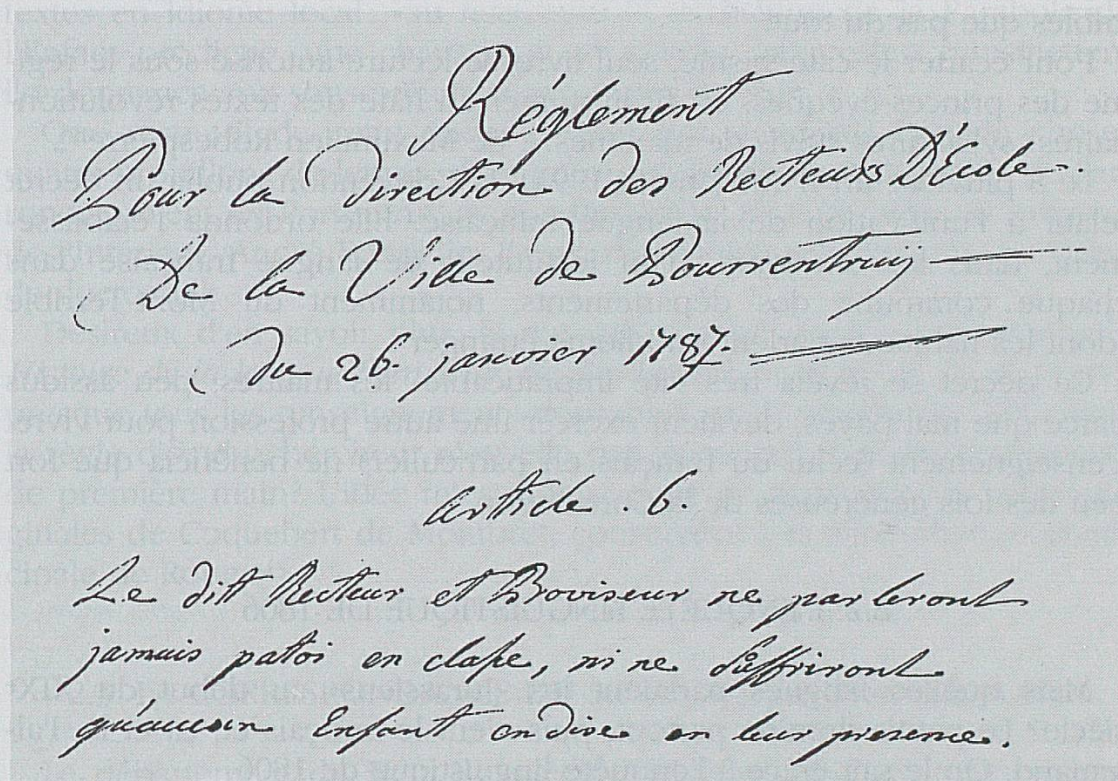 Réglement
Pour la direction des Recteurs D'École.
De la Ville de Pourrentruÿ
du 26. janvier 1787.
article . 6.
Le dit Recteur et Proviseur ne parleront
jamais patoi en claſse, ni ne Souffriront
qu'aucun Enfant en dise en leur presence.